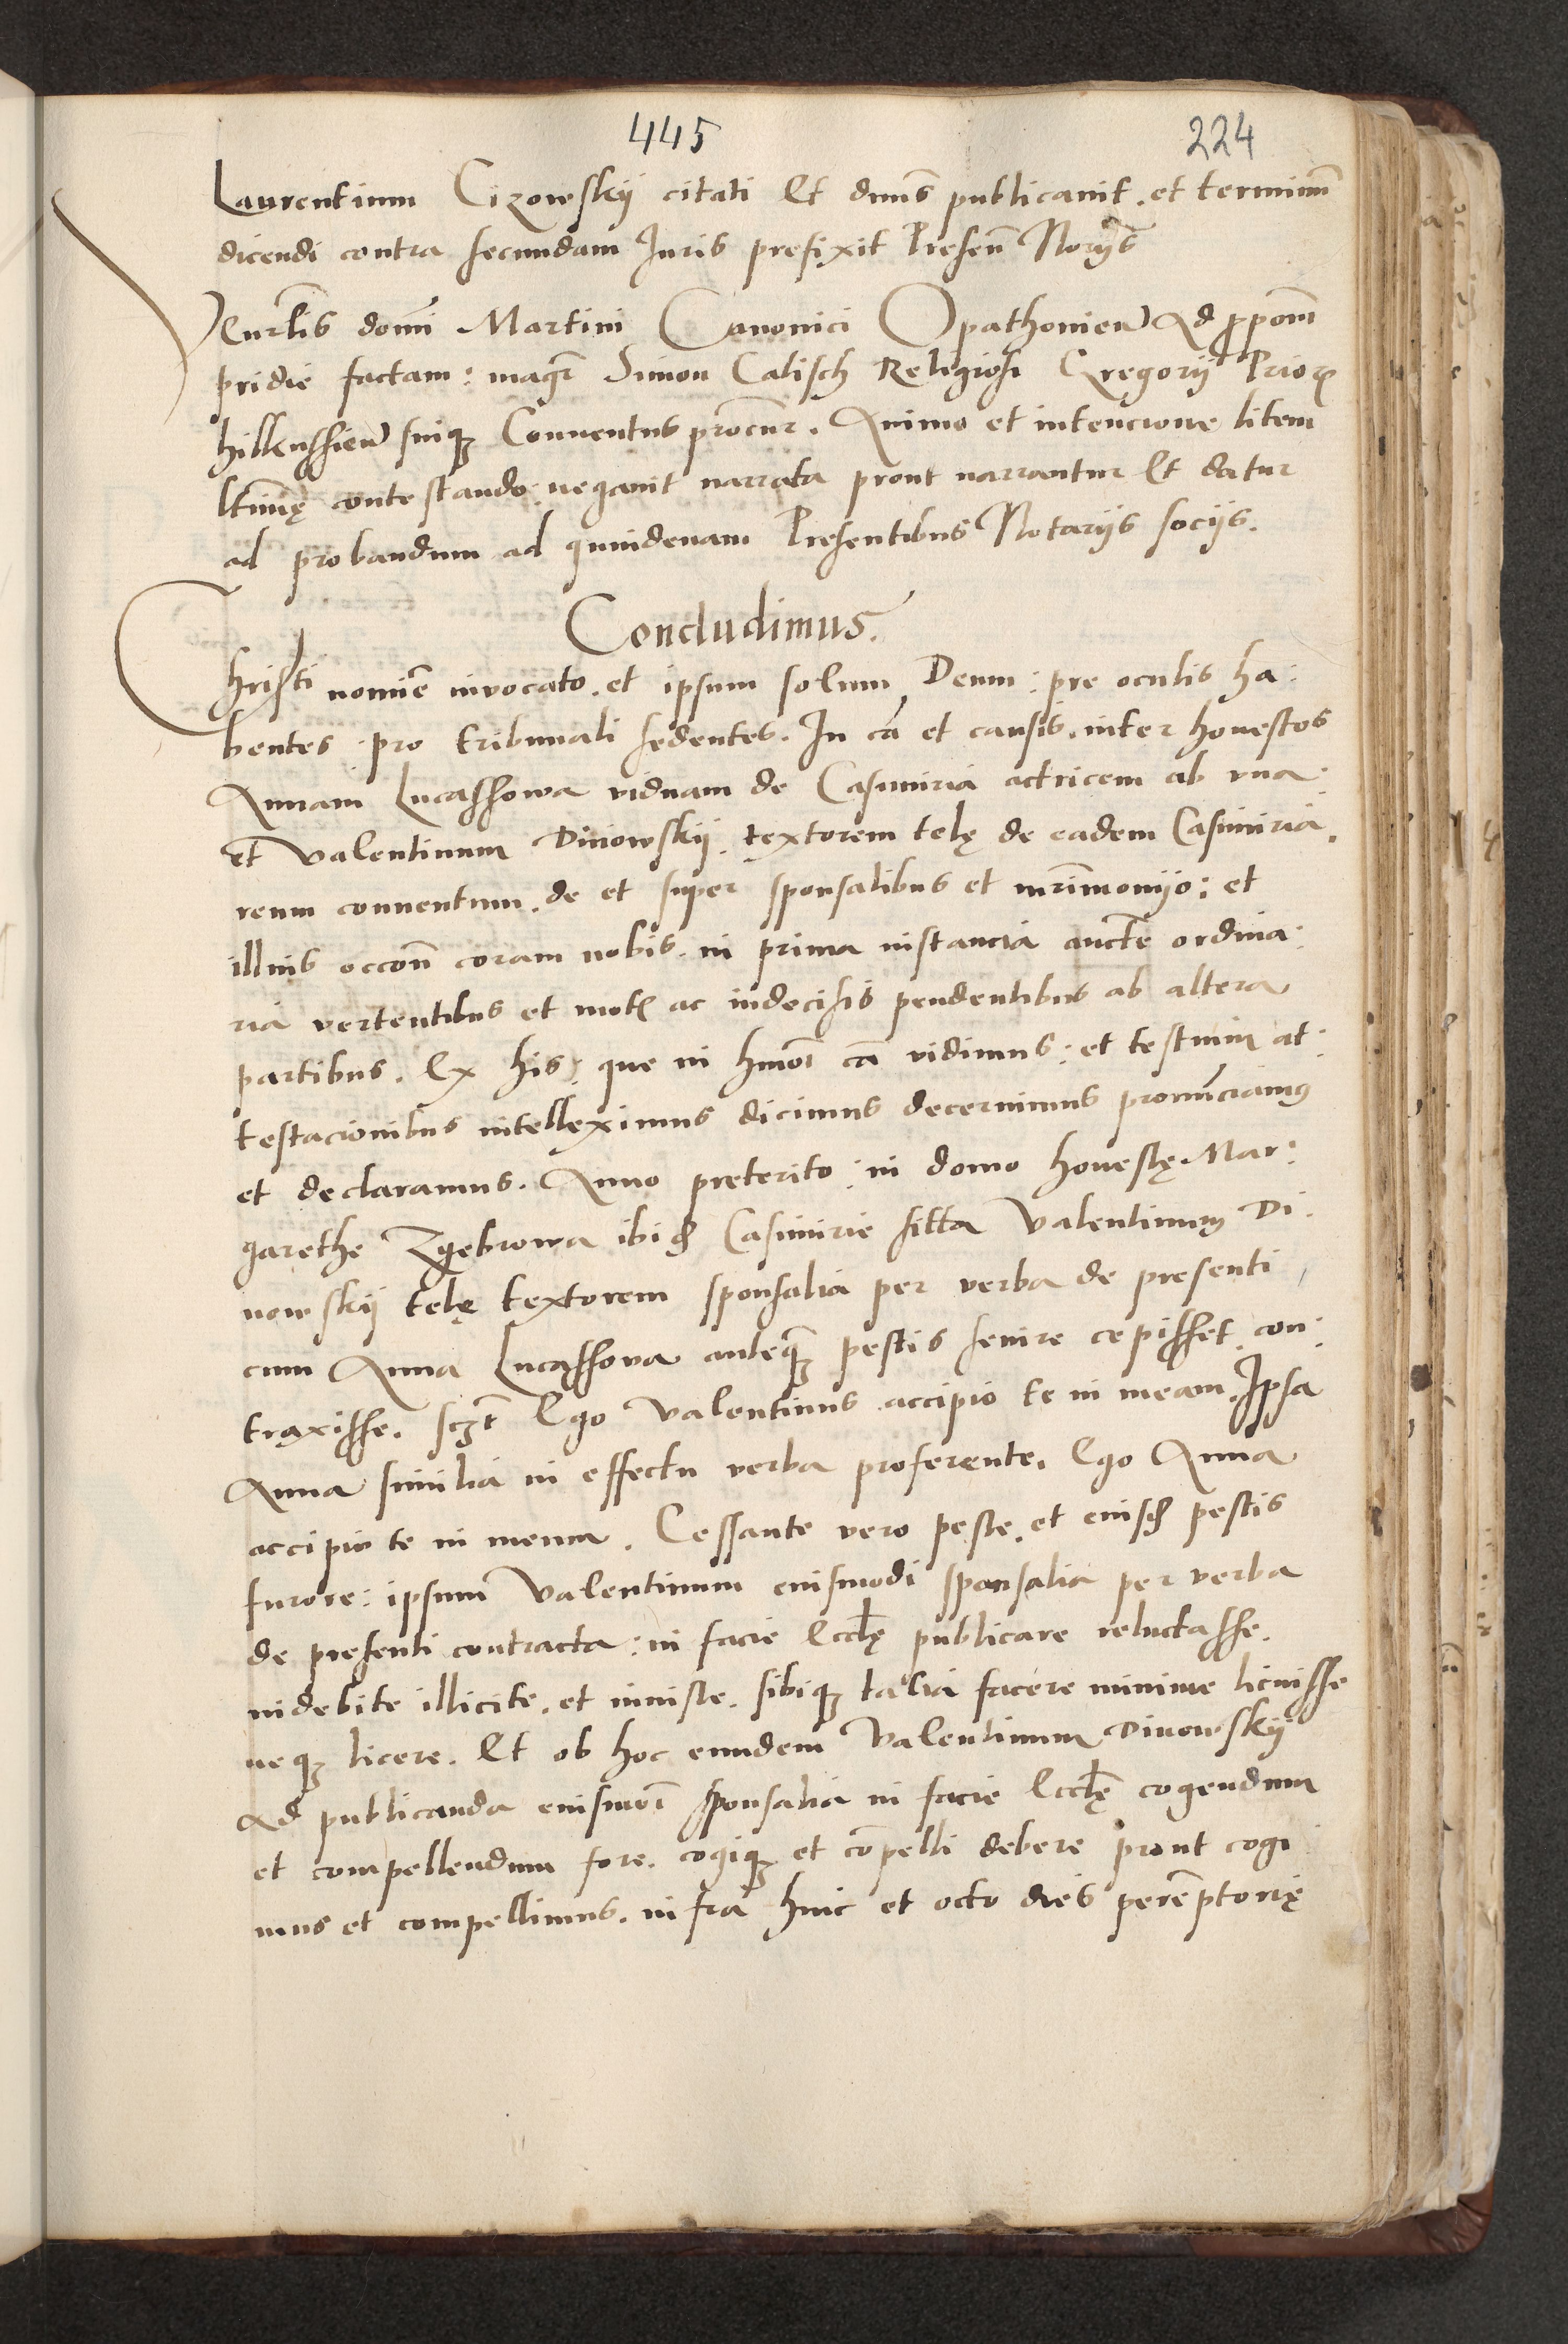 445 224
Laurentium Cizowskij citati Et dnus publicauit. et terminū
dicendi contra secundam Iuris prefixit Presen̄ Norijs
Venrlis domi Martini Canonici Opathonien̄ Ad ꝓpoōm
pridie factam: magr̄ Simon Calisch Religiosi Gregorij Prioꝝ
suiqꝫ Conuentus procur̄. Animo et intencione litem
ltimę contestando: negauit narrata prout narrantur Et datur
ad probandum ad quindenam Presentibus Notarijs socijs.
Concludimus.
Christi nomīe inuocato. et ipsum solum Deum: pre oculis ha:
bentes pro tribunali sedentes. In cā et causis. inter honestos
Annam Lucasshowa viduam de Casimiria actricem ab vna:
et Valentinum Dinowskij. textorem telę de eadem Casimiria.
reum conuentum. de et super sponsalibus et mr̄imonijo: et
illius occōn coram nobis. in prima instancia aucte ordina:
ria vertentibus et mot̄ ac indecisis pendentibus ab altera
partibus. Ex his: que in hmōi cā vidimus: et testium at:
testacionibus intelleximus dicimus decernimus pronunciamus
et declaramus. Anno preterito: in domo honestę Mar:
garethe Zgebrowa ibiđ Casimirie sitta Valentinum Di:
nowskij telę textorem sponsalia per verba de presenti
cum Anna Lucasshova anteqꝫ pestis seuire cepisset. con:
traxisse. sczt Ego Valentinus accipio te in meam. Ipsa
Anna similia in effectu verba proferente. Ego Anna
accipio te in meum. Cessante vero peste. et eiusđ pestis
furore: ipsum Valentinum eiusmodi sponsalia per verba
de presenti contracta: in facie Ecclę publicare reluctasse.
indebite illicite. et iniuste. sibiqꝫ talia facere minime licuisse
neqꝫ licere. Et ob hoc eundem Valentinum Dinowskij
Ad publicanda eiusmōi sponsalia in facie Ecclę cogendum
et compellendum fore. cogiqꝫ et cōpelli debere prout cogi
mus et compellimus. infra hinc et octo dies perēptorię